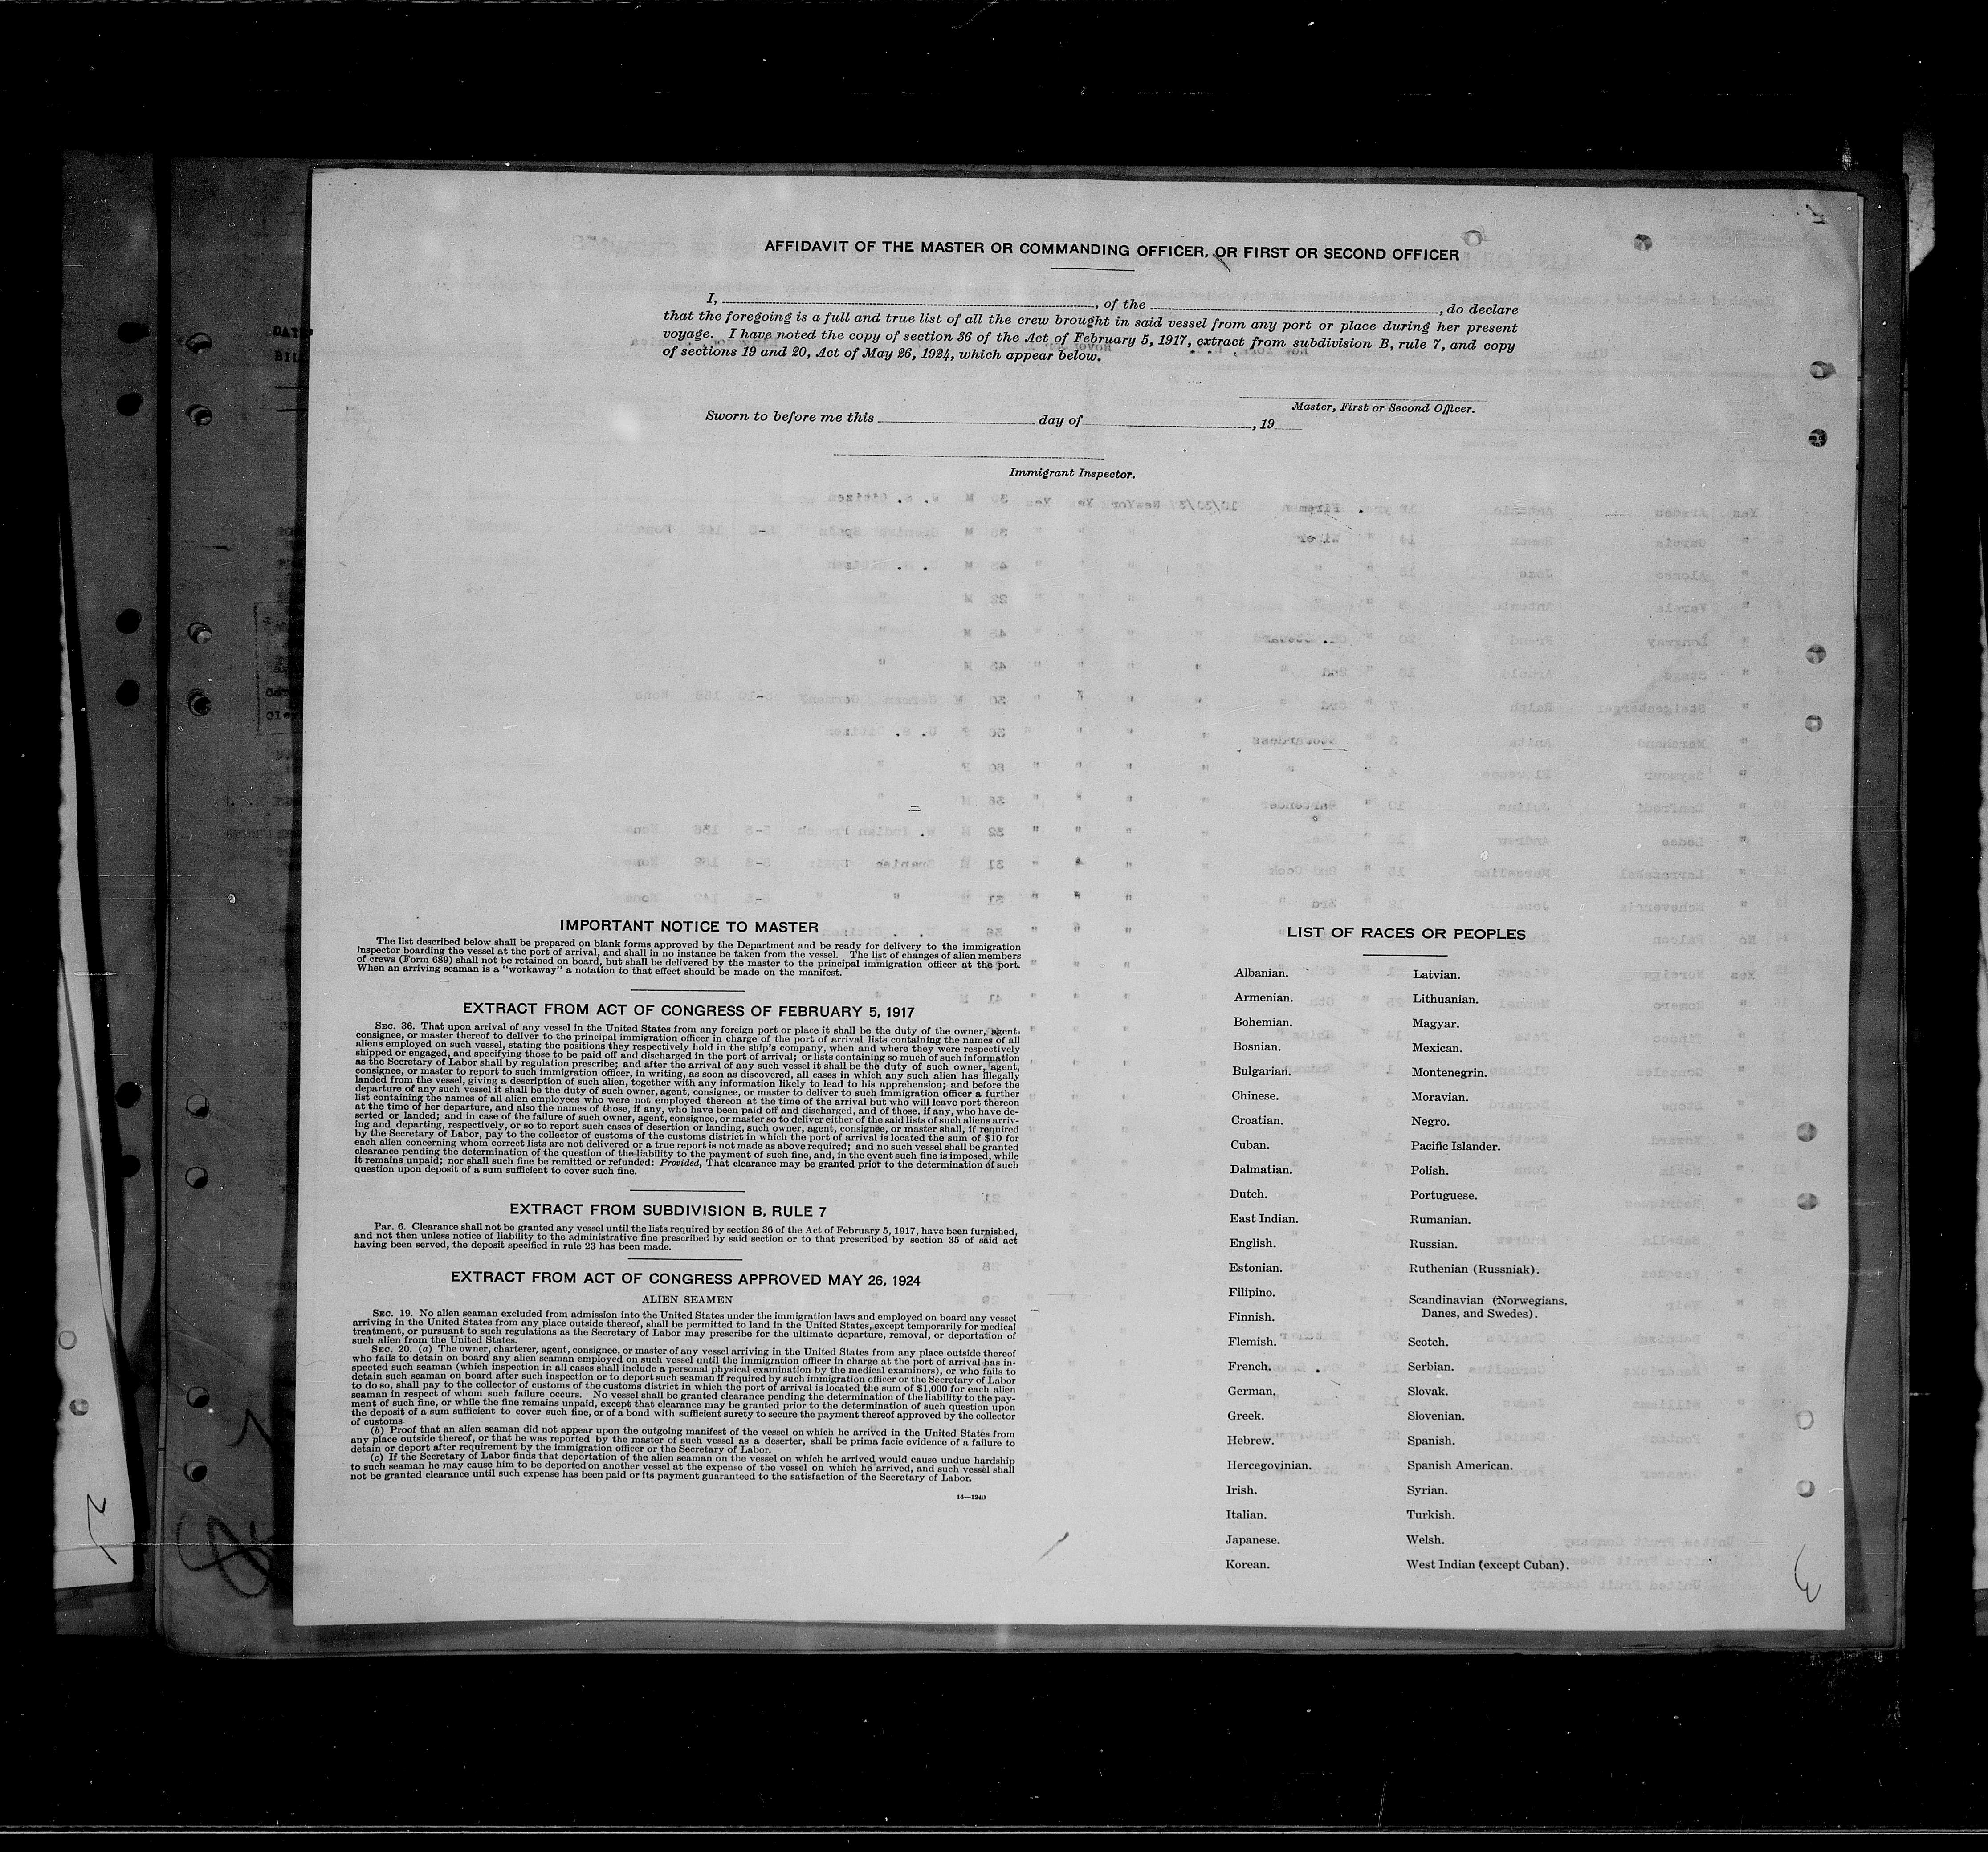 AFFIDAVIT OF THE MASTER OR COMMANDING OFFICER, OR FIRST OR SECOND OFFICER
I, , of the , do declare
that the foregoing is a full and true list of all the crew brought in said vessel from any port or place during her present
voyage. I have noted the copy of section 36 of the Act of February 5, 1917, extract from subdivision B, rule 7, and copy
of sections 19 and 20, Act of May 26, 1924, which appear below.
Master, First or Second Officer.
Sworn to before me this day of , 19
Immigrant Inspector.
IMPORTANT NOTICE TO MASTER
The list described below shall be prepared on blank forms approved by the Department and be ready for delivery to the immigration
inspector boarding the vessel at the port of arrival, and shall in no instance be taken from the vessel. The list of changes of alien members
of crews (Form 689) shall not be retained on board, but shall be delivered by the master to the principal immigration officer at the port.
When an arriving seaman is a "workaway" a notation to that effect should be made on the manifest.
EXTRACT FROM ACT OF CONGRESS OF FEBRUARY 5, 1917
SEC. 36. That upon arrival of any vessel in the United States from any foreign port or place it shall be the duty of the owner, agent,
consignee, or master thereof to deliver to the principal immigration officer in charge of the port of arrival lists containing the names of all
aliens employed on such vessel, stating the positions they respectively hold in the ship's company, when and where they were respectively
shipped or engaged, and specifying those to be paid off and discharged in the port of arrival; or lists containing so much of such information
as the Secretary of Labor shall by regulation prescribe; and after the arrival of any such vessel it shall be the duty of such owner, agent,
consignee, or master to report to such immigration officer, in writing, as soon as discovered, all cases in which any such alien has illegally
landed from the vessel, giving a description of such alien, together with any information likely to lead to his apprehension; and before the
departure of any such vessel it shall be the duty of such owner, agent, consignee, or master to deliver to such immigration officer a further
list containing the names of all alien employees who were not employed thereon at the time of the arrival but who will leave port thereon
at the time of her departure, and also the names of those, if any, who have been paid off and discharged, and of those, if any, who have de-
serted or landed; and in case of the failure of such owner, agent, consignee, or master so to deliver either of the said lists of such aliens arriv-
ing and departing, respectively, or so to report such cases of desertion or landing, such owner, agent, consignee, or master shall, if required
by the Secretary of Labor, pay to the collector of customs of the customs district in which the port of arrival is located the sum of $10 for
each alien concerning whom correct lists are not delivered or a true report is not made as above required; and no such vessel shall be granted
clearance pending the determination of the question of the liability to the payment of such fine, and, in the event such fine is imposed, while
it remains unpaid; nor shall such fine be remitted or refunded: Provided, That clearance may be granted prior to the determination of such
question upon deposit of a sum sufficient to cover such fine.
EXTRACT FROM SUBDIVISION B, RULE 7
Par. 6. Clearance shall not be granted any vessel until the lists required by section 36 of the Act of February 5, 1917, have been furnished,
and not then unless notice of liability to the administrative fine prescribed by said section or to that prescribed by section 35 of said act
having been served, the deposit specified in rule 23 has been made.
EXTRACT FROM ACT OF CONGRESS APPROVED MAY 26, 1924
ALIEN SEAMEN
SEC. 19. No alien seaman excluded from admission into the United States under the immigration laws and employed on board any vessel
arriving in the United States from any place outside thereof, shall be permitted to land in the United States, except temporarily for medical
treatment, or pursuant to such regulations as the Secretary of Labor may prescribe for the ultimate departure, removal, or deportation of
such alien from the United States.
SEC. 20. (a) The owner, charterer, agent, consignee, or master of any vessel arriving in the United States from any place outside thereof
who fails to detain on board any alien seaman employed on such vessel until the immigration officer in charge at the port of arrival has in-
spected such seaman (which inspection in all cases shall include a personal physical examination by the medical examiners), or who fails to
detain such seaman on board after such inspection or to deport such seaman if required by such immigration officer or the Secretary of Labor
to do so, shall pay to the collector of customs of the customs district in which the port of arrival is located the sum of $1,000 for each alien
seaman in respect of whom such failure occurs. No vessel shall be granted clearance pending the determination of the liability to the pay-
ment of such fine, or while the fine remains unpaid, except that clearance may be granted prior to the determination of such question upon
the deposit of a sum sufficient to cover such fine, or of a bond with sufficient surety to secure the payment thereof approved by the collector
of customs
(b) Proof that an alien seaman did not appear upon the outgoing manifest of the vessel on which he arrived in the United States from
any place outside thereof, or that he was reported by the master of such vessel as a deserter, shall be prima facie evidence of a failure to
detain or deport after requirement by the immigration officer or the Secretary of Labor.
(c) If the Secretary of Labor finds that deportation of the alien seaman on the vessel on which he arrived would cause undue hardship
to such seaman he may cause him to be deported on another vessel at the expense of the vessel on which he arrived, and such vessel shall
not be granted clearance until such expense has been paid or its payment guaranteed to the satisfaction of the Secretary of Labor.
14—1240
LIST OF RACES OR PEOPLES
Albanian.
Armenian.
Bohemian.
Bosnian.
Bulgarian.
Chinese.
Croatian.
Cuban.
Dalmatian.
Dutch.
East Indian.
English.
Estonian.
Filipino.
Finnish.
Flemish.
French.
German.
Greek.
Hebrew.
Hercegovinian.
Irish.
Italian.
Japanese.
Korean.
Latvian.
Lithuanian.
Magyar.
Mexican.
Montenegrin.
Moravian.
Negro.
Pacific Islander.
Polish.
Portuguese.
Rumanian.
Russian.
Ruthenian (Russniak).
Scandinavian (Norwegians,
Danes, and Swedes).
Scotch.
Serbian.
Slovak.
Slovenian.
Spanish.
Spanish American.
Syrian.
Turkish.
Welsh.
West Indian (except Cuban).
3
2